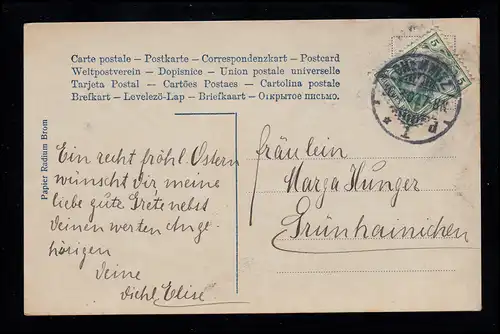 Carte postale – Postkarte – Correspondenzkart – Postcard
Weltpostverein – Dopisnice – Union postale universelle
Tarjeta Postal – Cartões Postaes – Cartolina postale
Brefkart – Levelező-Lap – Briefkaart – Открытое письмо.
Papier Radium Brom
Ein recht fröhl. Ostern
wünscht Dir meine
liebe gute Grete nebst
Deinen werten Ange-
hörigen
Deine
Elise.
Fräulein
Marga Hunger
Grünhainichen
5
5